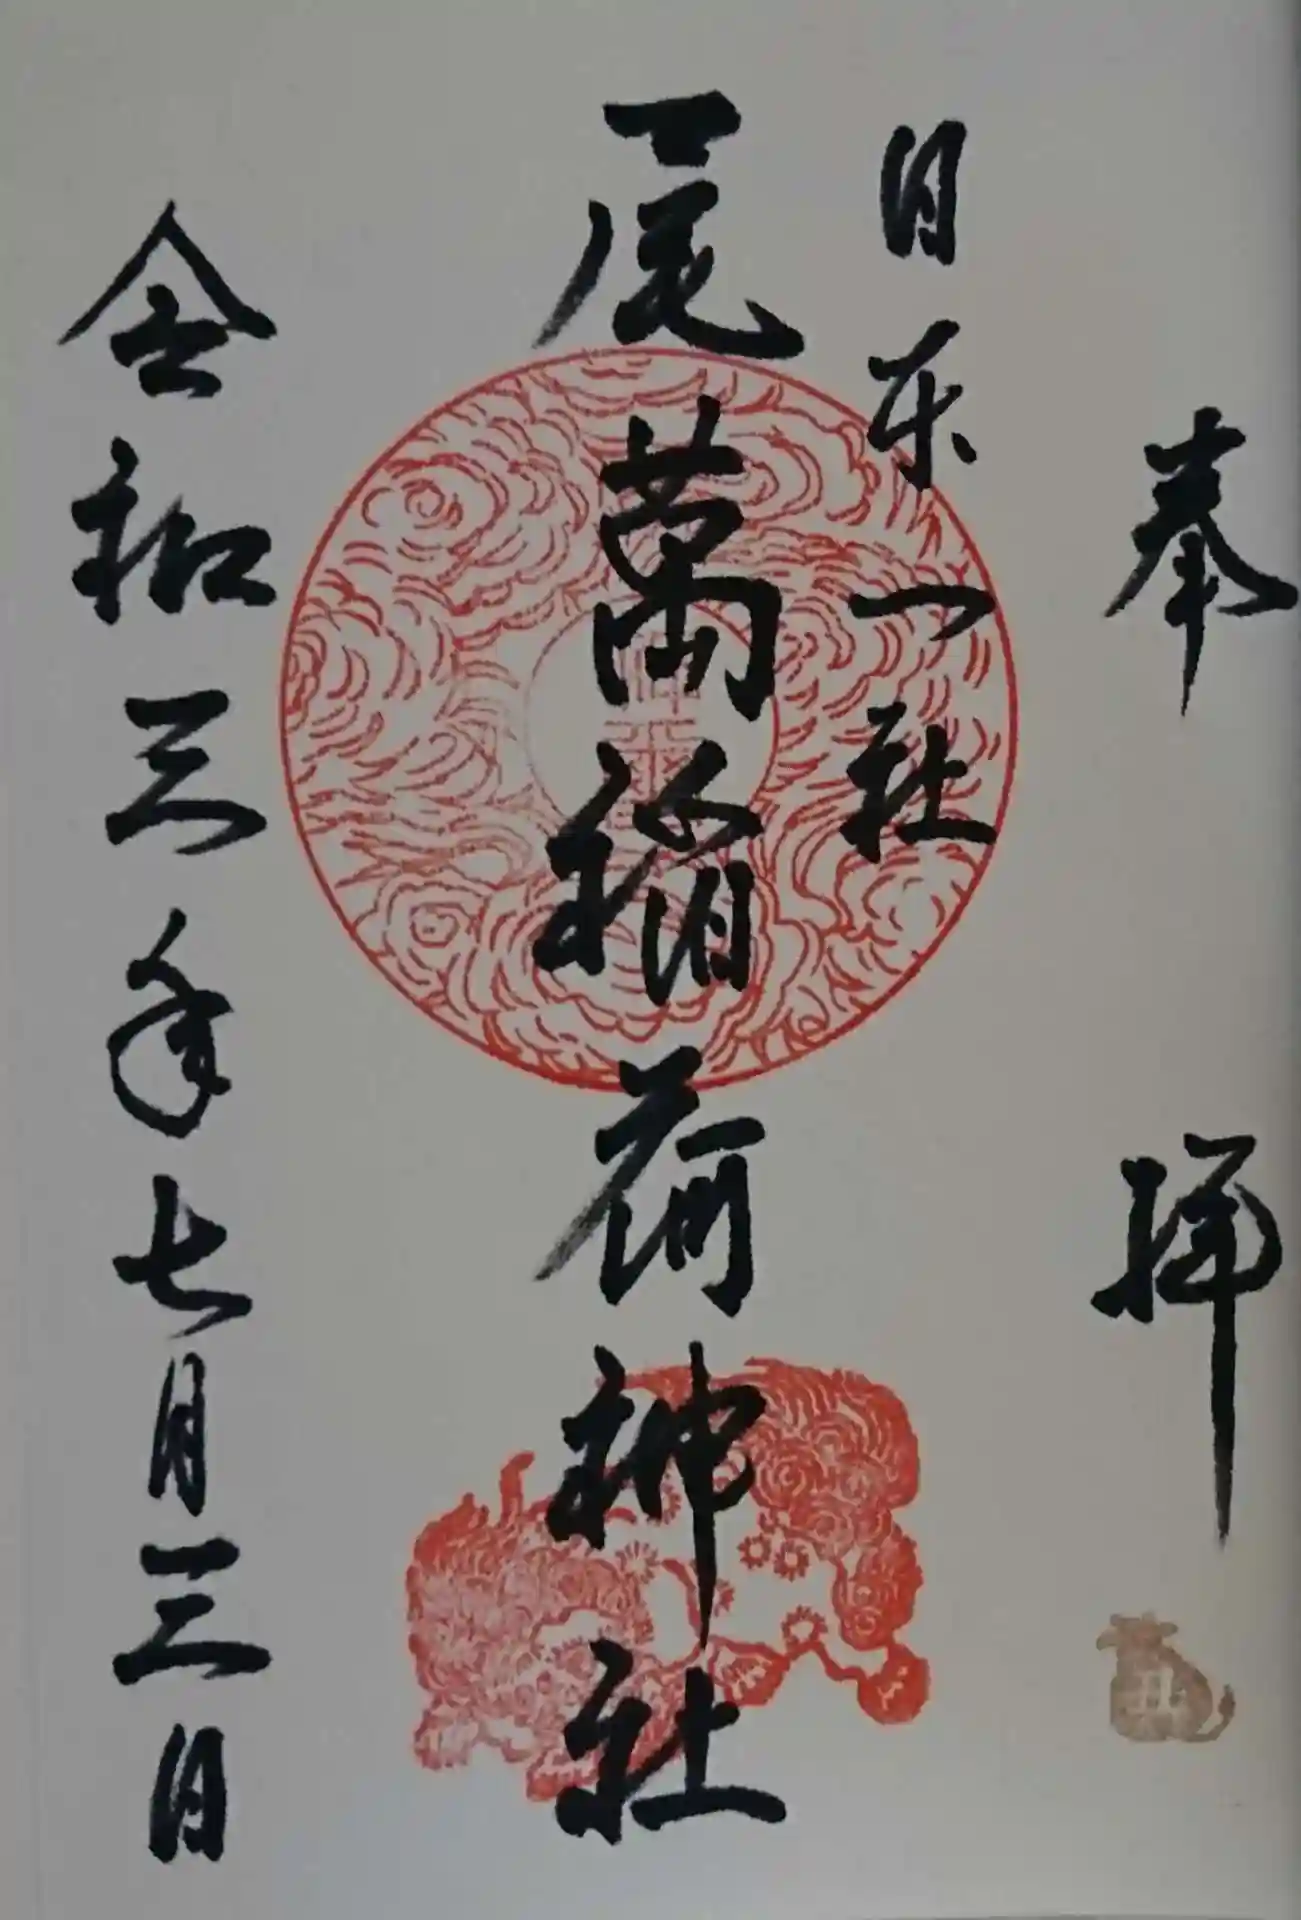 奉拝
日本一社
一尾萬稲荷神社
令和三年七月三日
丑